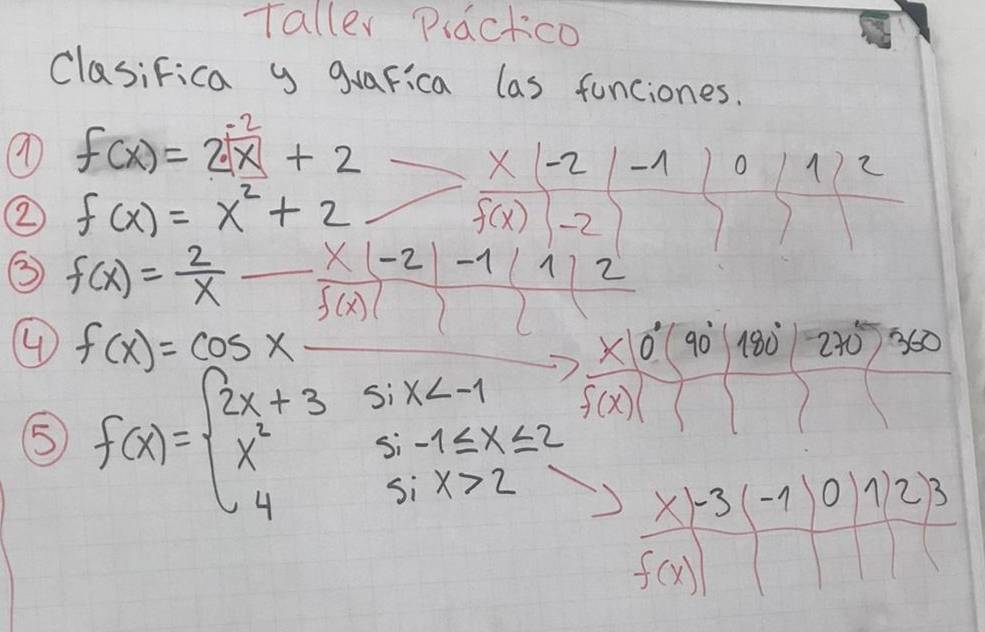 Taller Práctico
Clasifica y grafica las funciones.
① f(x) = 2·x + 2
-2
x | -2 | -1 | 0 | 1 | 2
f(x) | -2
② f(x) = x² + 2
③ f(x) = 2/x
x | -2 | -1 | 1 | 2
f(x)
④ f(x) = cos x
x | 0° | 90° | 180° | 270° | 360
f(x)
⑤ f(x) = { 2x + 3 si x < -1
x² si -1 ≤ x ≤ 2
4 si x > 2
x | -3 | -1 | 0 | 1 | 2 | 3
f(x)